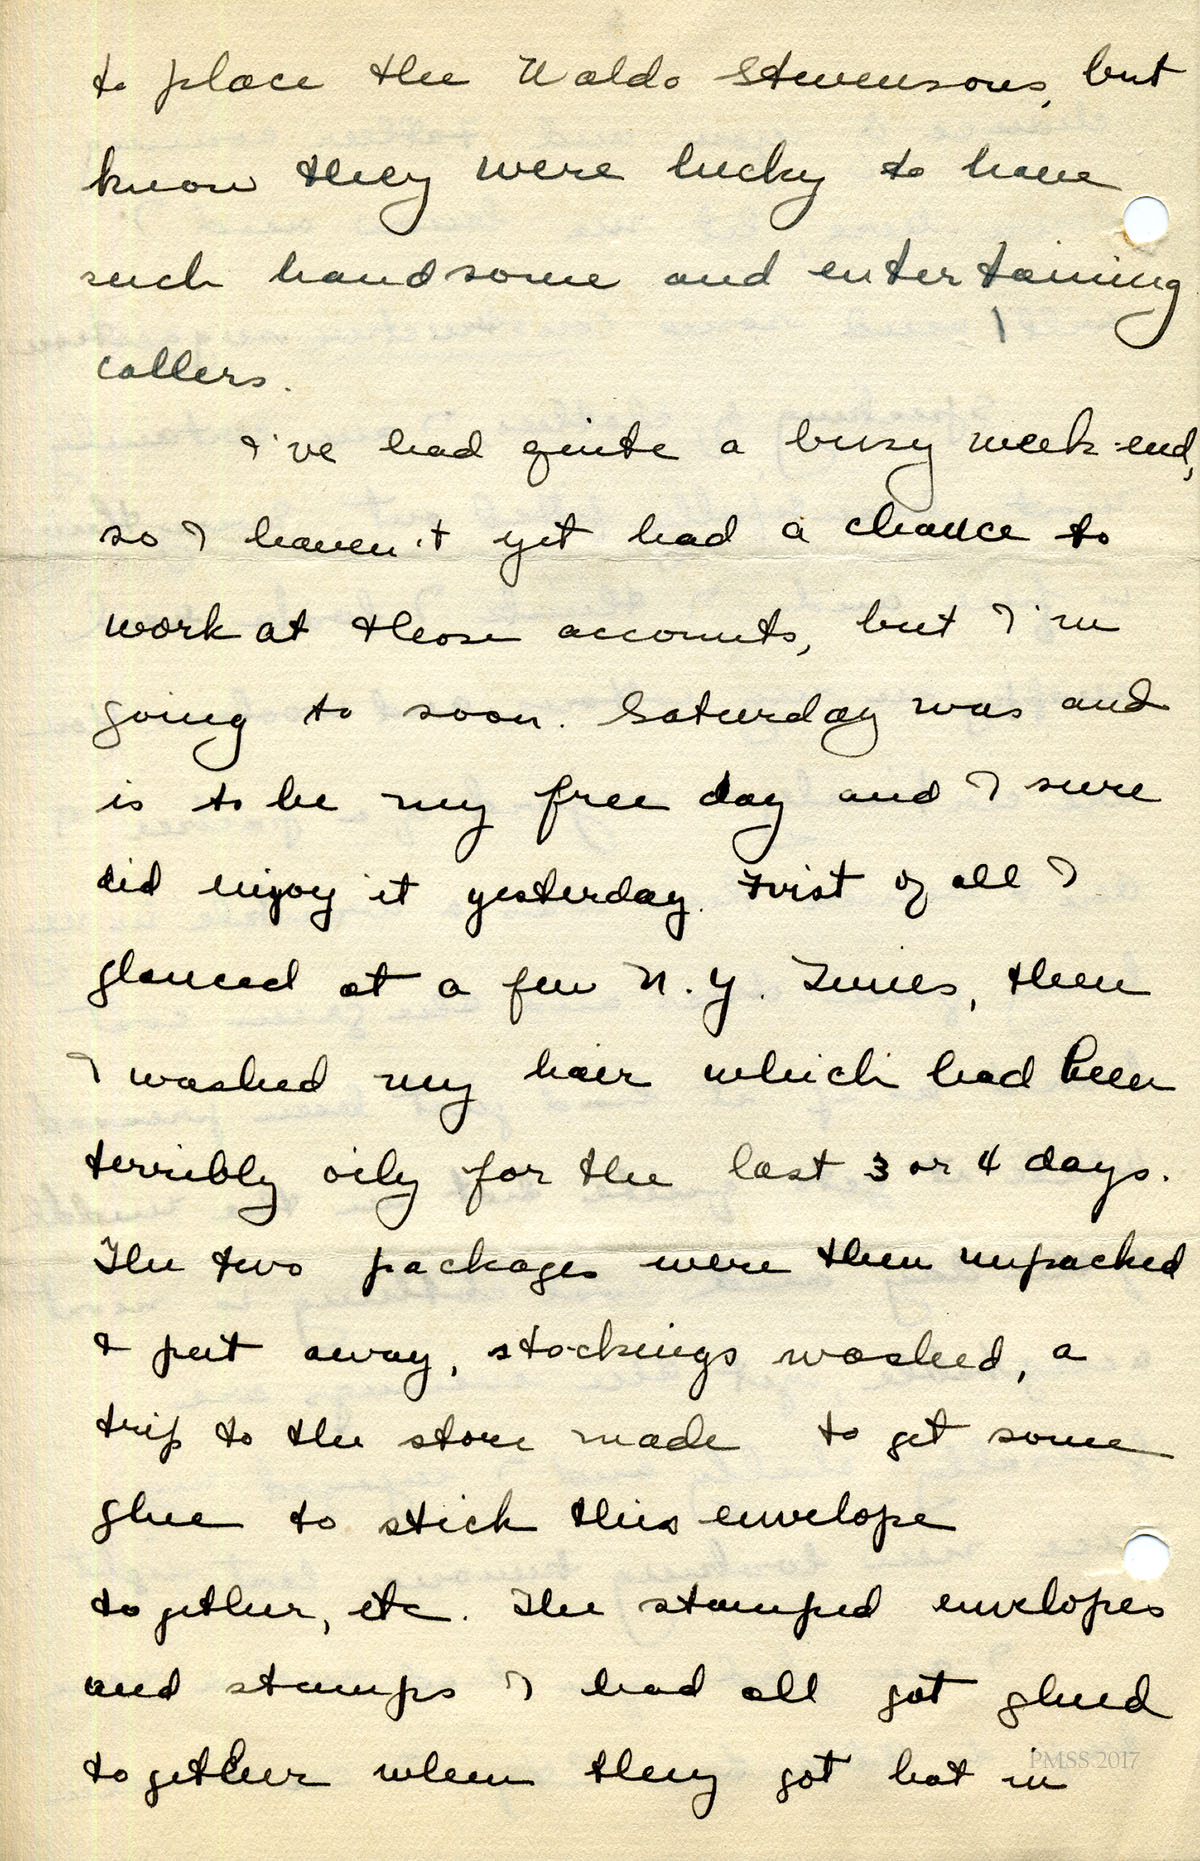 to place the Waldo Stevensons, but
know they were lucky to have
such handsome and entertaining
callers.
I've had quite a busy week-end,
so I haven't yet had a chance to
work at those accounts, but I'm
going to soon. Saturday was and
is to be my free day and I sure
did enjoy it yesterday. First of all I
glanced at a few N.Y. Times, then
I washed my hair which had been
terribly oily for the last 3 or 4 days.
The two packages were then unpacked
& put away, stockings washed, a
trip to the store made to get some
glue to stick this envelope
together, etc. The stamped envelopes
and stamps I had all got glued
together when they got hot in
PMSS 2017